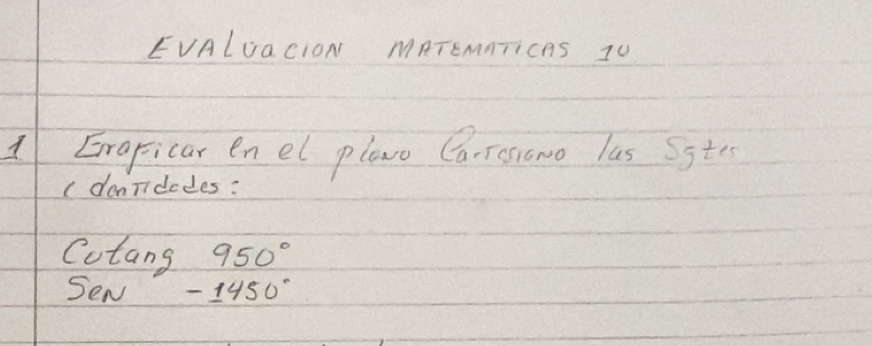 EVALUACION MATEMATICAS 10
1 Graficar en el plano Cartesiano las Sgtes
identidades:
Cotang 950°
Sen -1450°